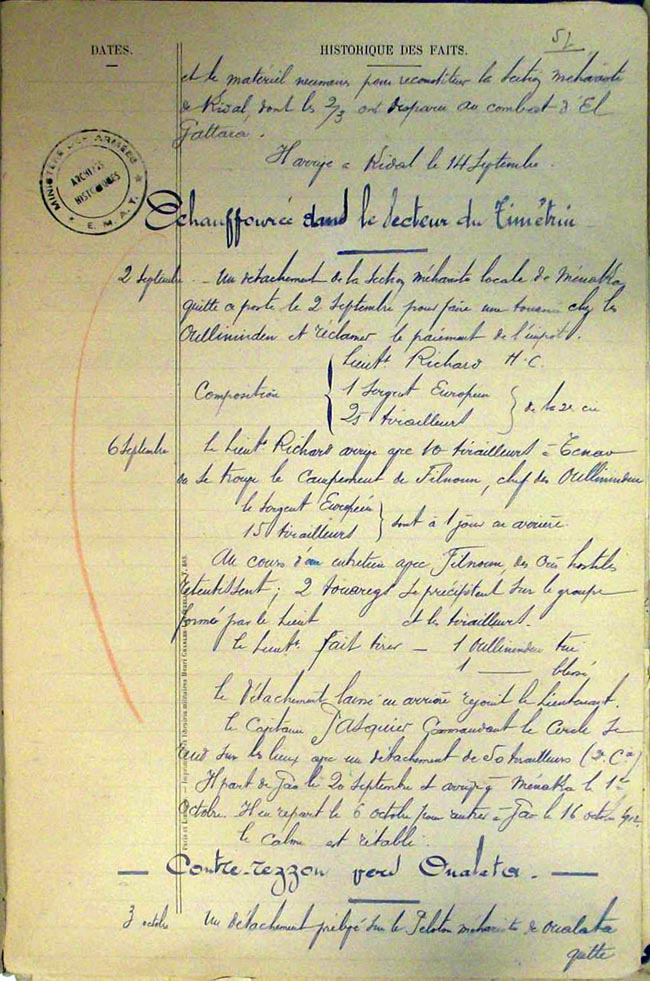 52
DATES.
HISTORIQUE DES FAITS.
et le matériel necessaire pour reconstituer la Section méhariste
de Kidal, dont les 2/3 ont disparu au combat d'El
Gattara.
Il arrive à Kidal le 14 Septembre.
MINISTERE DES ARMÉES
ARCHIVES
HISTORIQUES
E.M.A.T.
Echauffourée dans le secteur du Timétrin
2 Septembre _ Un détachement de la Section méhariste locale de Ménaka
quitte ce poste le 2 Septembre pour faire une tournée chez les
Oulliminden et réclamer le paiement de l'impôt.
Composition
Lieut^t Richard H.C.
1 Sergent Européen
25 tirailleurs
de la 2e Cie
6 Septembre Le Lieut^t Richard arrive avec 10 tirailleurs à
où se trouve le campement de Filnoun, chef des Oulliminden
le Sergent Européen
15 tirailleurs
sont à 1 jour en arrière.
Au cours d'un entretien avec Filnoun, des cris hostiles
retentissent; 2 touaregs se précipitent sur le groupe
formé par le Lieut et les tirailleurs.
Le Lieut^t fait tirer _ 1 Oulliminden tué
1 —— blessé
Le détachement laissé en arrière rejoint le Lieutenant.
Le Capitaine Pasquier Commandant le Cercle se
rend sur les lieux avec un détachement de 50 tirailleurs (2e Cie)
Il part de Gao le 20 Septembre et arrive à Ménaka le 1er
Octobre. Il en repart le 6 octobre pour rentrer à Gao le 16 octobre 912.
Le calme est rétabli.
— Contre-rezzou vers Oualata. —
3 octobre Un détachement prélevé sur le Peloton méhariste de Oualata
quitte